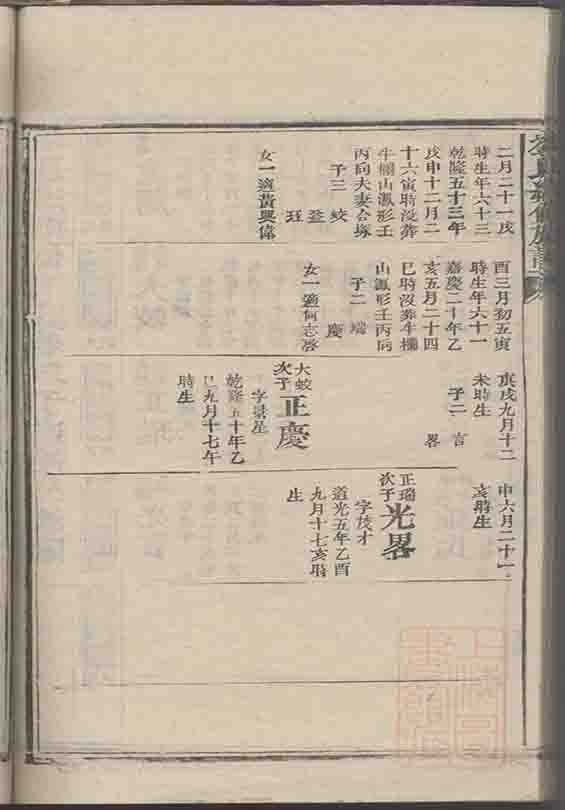 二月二十一戌
時生年六十三
乾隆五十三年
戊申十二月二
十六寅時沒葬
牛欄山瀛形壬
丙向夫妻合塚
子三 蛟
登
玨
女一適黃興偉
酉三月初五寅
時生年六十一
嘉慶二十年乙
亥五月二十四
巳時沒葬牛欄
山瀛形壬丙向
子二 瑞
慶
女一適何志啓
庚戌九月十二
未時生
子二 言
畧
大蛟
次子
正慶
字景星
乾隆五十年乙
巳九月十七午
時生
申六月二十一
亥時生
正瑞
次子
光畧
字技才
道光五年乙酉
九月十七亥時
生